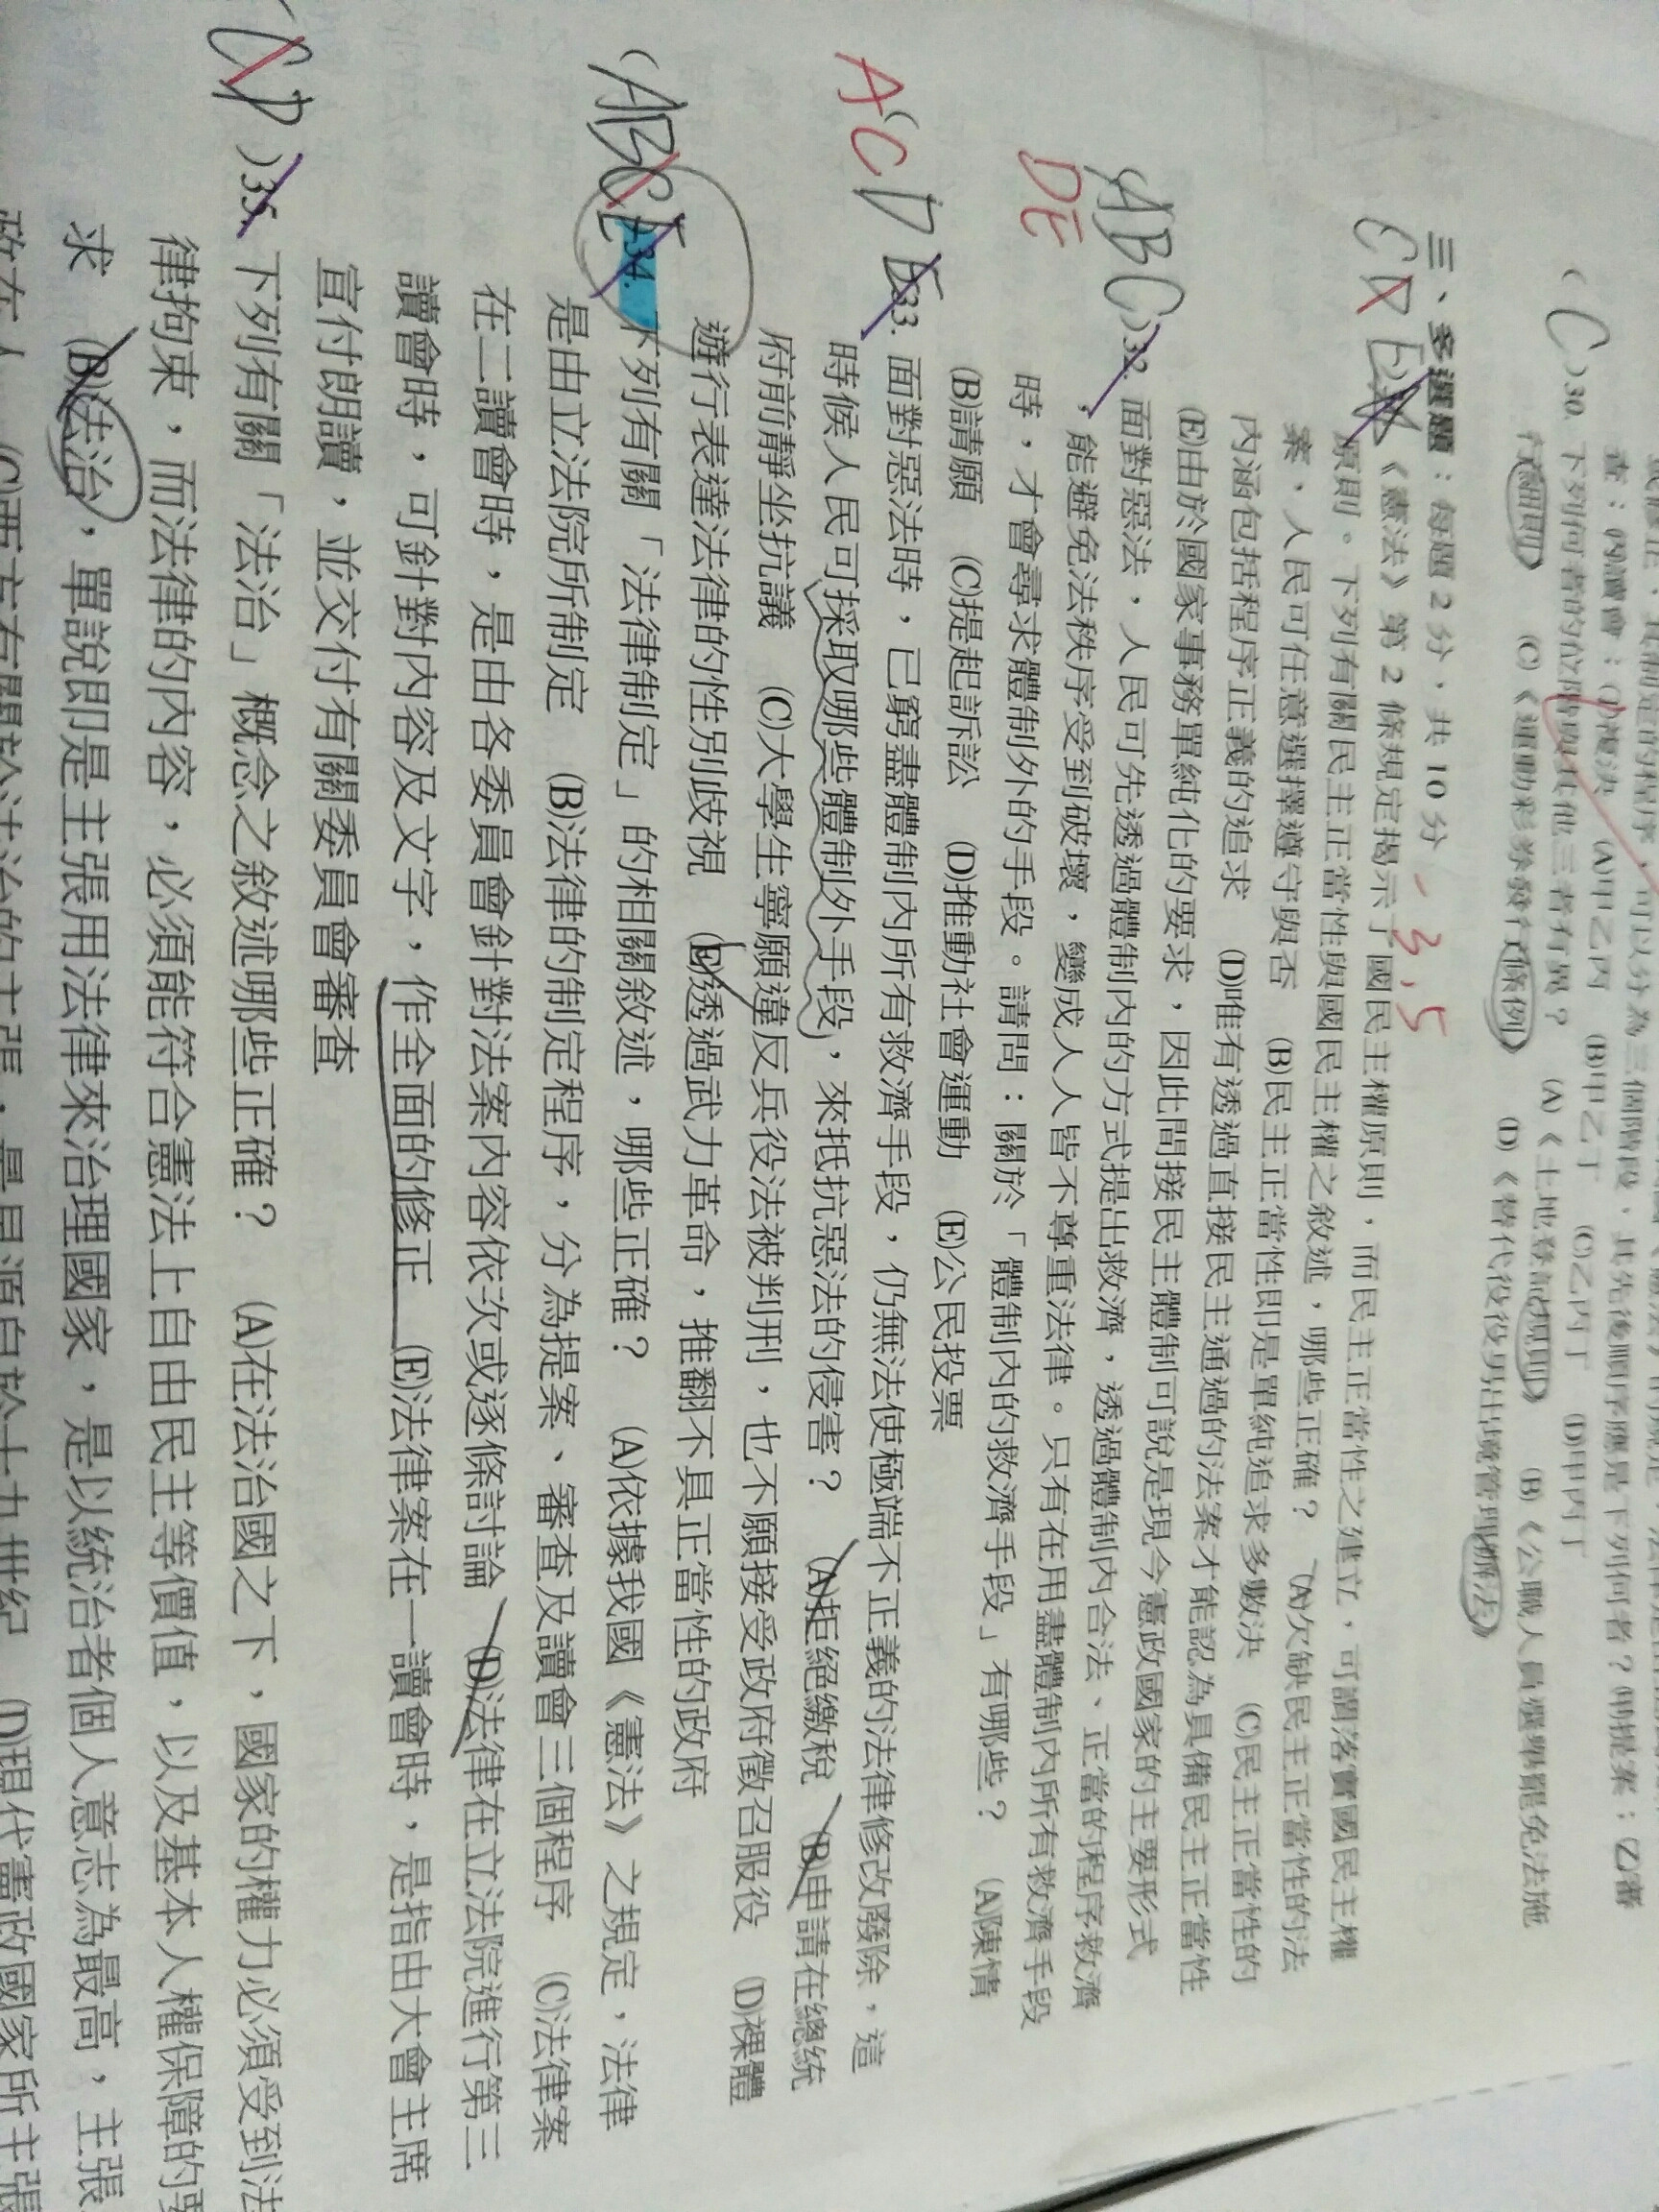 查；(丙)讀會；(丁)複決 (A)甲乙丙 (B)甲乙丁 (C)乙丙丁 (D)甲丙丁
( C )30. 下列何者的位階與其他三者有異？ (A)《土地登記規則》 (B)《公職人員選舉罷免法施
行細則》 (C)《運動彩券發行條例》 (D)《替代役役男出境管理辦法》
三、多選題：每題 2 分，共 10 分 -3.5
《憲法》第 2 條規定揭示了國民主權原則，而民主正當性之建立，可謂落實國民主權
原則。下列有關民主正當性與國民主權之敘述，哪些正確？ (A)欠缺民主正當性的法
案，人民可任意選擇遵守與否 (B)民主正當性即是單純追求多數決 (C)民主正當性的
內涵包括程序正義的追求 (D)唯有透過直接民主通過的法案才能認為具備民主正當性
(E)由於國家事務單純化的要求，因此間接民主體制可說是現今憲政國家的主要形式
ABC )32. 面對惡法，人民可先透過體制內的方式提出救濟，透過體制內合法、正當的程序救濟
DE
，能避免法秩序受到破壞，變成人人皆不尊重法律。只有在用盡體制內所有救濟手段
時，才會尋求體制外的手段。請問：關於「體制內的救濟手段」有哪些？ (A)陳情
(B)請願 (C)提起訴訟 (D)推動社會運動 (E)公民投票
ACD 33. 面對惡法時，已窮盡體制內所有救濟手段，仍無法使極端不正義的法律修改廢除，這
時候人民可採取哪些體制外手段，來抵抗惡法的侵害？ (A)拒絕繳稅 (B)申請在總統
府前靜坐抗議 (C)大學生寧願違反兵役法被判刑，也不願接受政府徵召服役 (D)裸體
遊行表達法律的性別歧視 (E)透過武力革命，推翻不具正當性的政府
(ABCE 34. 下列有關「法律制定」的相關敘述，哪些正確？ (A)依據我國《憲法》之規定，法律
是由立法院所制定 (B)法律的制定程序，分為提案、審查及讀會三個程序 (C)法律案
在二讀會時，是由各委員會針對法案內容依次或逐條討論 (D)法律在立法院進行第三
讀會時，可針對內容及文字，作全面的修正 (E)法律案在一讀會時，是指由大會主席
宣付朗讀，並交付有關委員會審查
( CD )35. 下列有關「法治」概念之敘述哪些正確？ (A)在法治國之下，國家的權力必須受到法
律拘束，而法律的內容，必須能符合憲法上自由民主等價值，以及基本人權保障的要
求 (B)法治，單說即是主張用法律來治理國家，是以統治者個人意志為最高，主張
政在人 (C)西方有關於法治的主張，最早源自於十九世紀 (D)現代憲政國家所主張